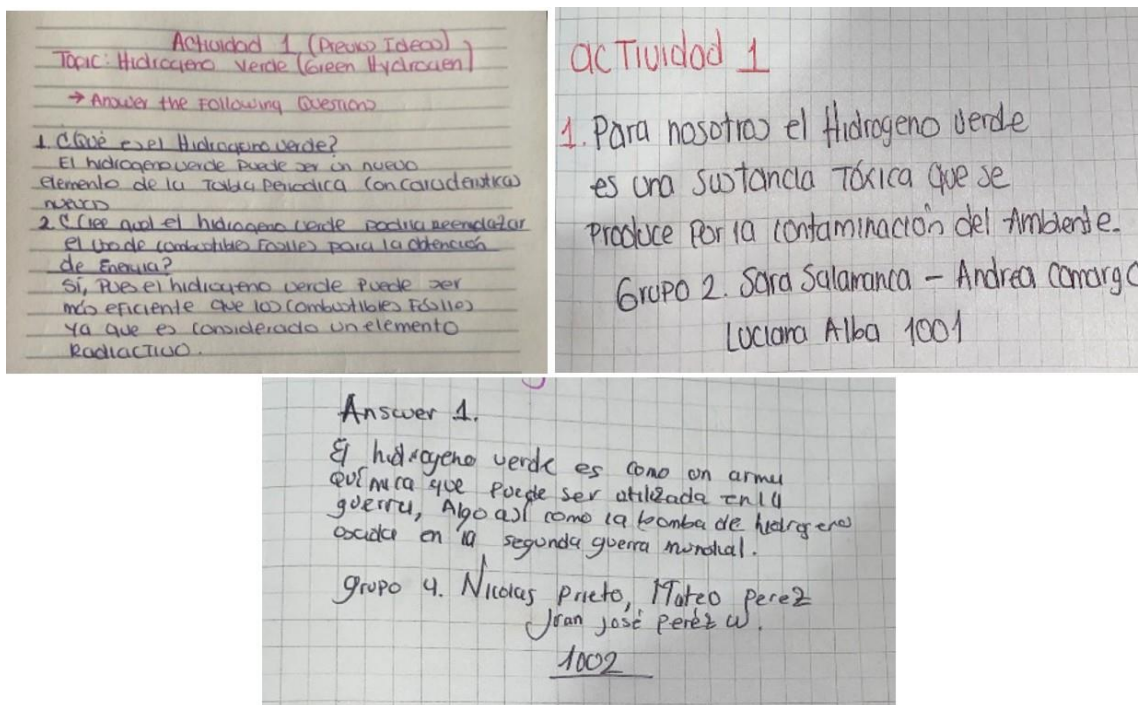 Actividad 1 (Previas Ideas)
Topic: Hidrogeno verde (Green Hydrogen)
→ Answer the Following Questions
1. ¿Qué es el Hidrogeno verde?
El hidrogeno verde Puede ser un nuevo
elemento de la Tabla Periodica con caracteristicas
nuevas
2. ¿Cree qué el hidrogeno verde podria reemplazar
el uso de combustibles Fosiles para la obtención
de Energia?
Sí, Pues el hidrogeno verde Puede ser
más eficiente que los combustibles Fósiles
ya que es considerado un elemento
Radiactivo.
acTividad 1
1. Para nosotras el Hidrogeno verde
es una sustancia Tóxica que se
Produce Por la contaminación del Ambiente.
Grupo 2. Sara Salamanca - Andrea Camargo
Luciana Alba 1001
Answer 1.
El hidrogeno verde es como un arma
química que puede ser utilizada en la
guerra, Algo así como la bomba de hidrogeno
usada en la segunda guerra mundial.
grupo 4. Nicolas Prieto, Mateo Perez
Juan José Peréz W.
1002